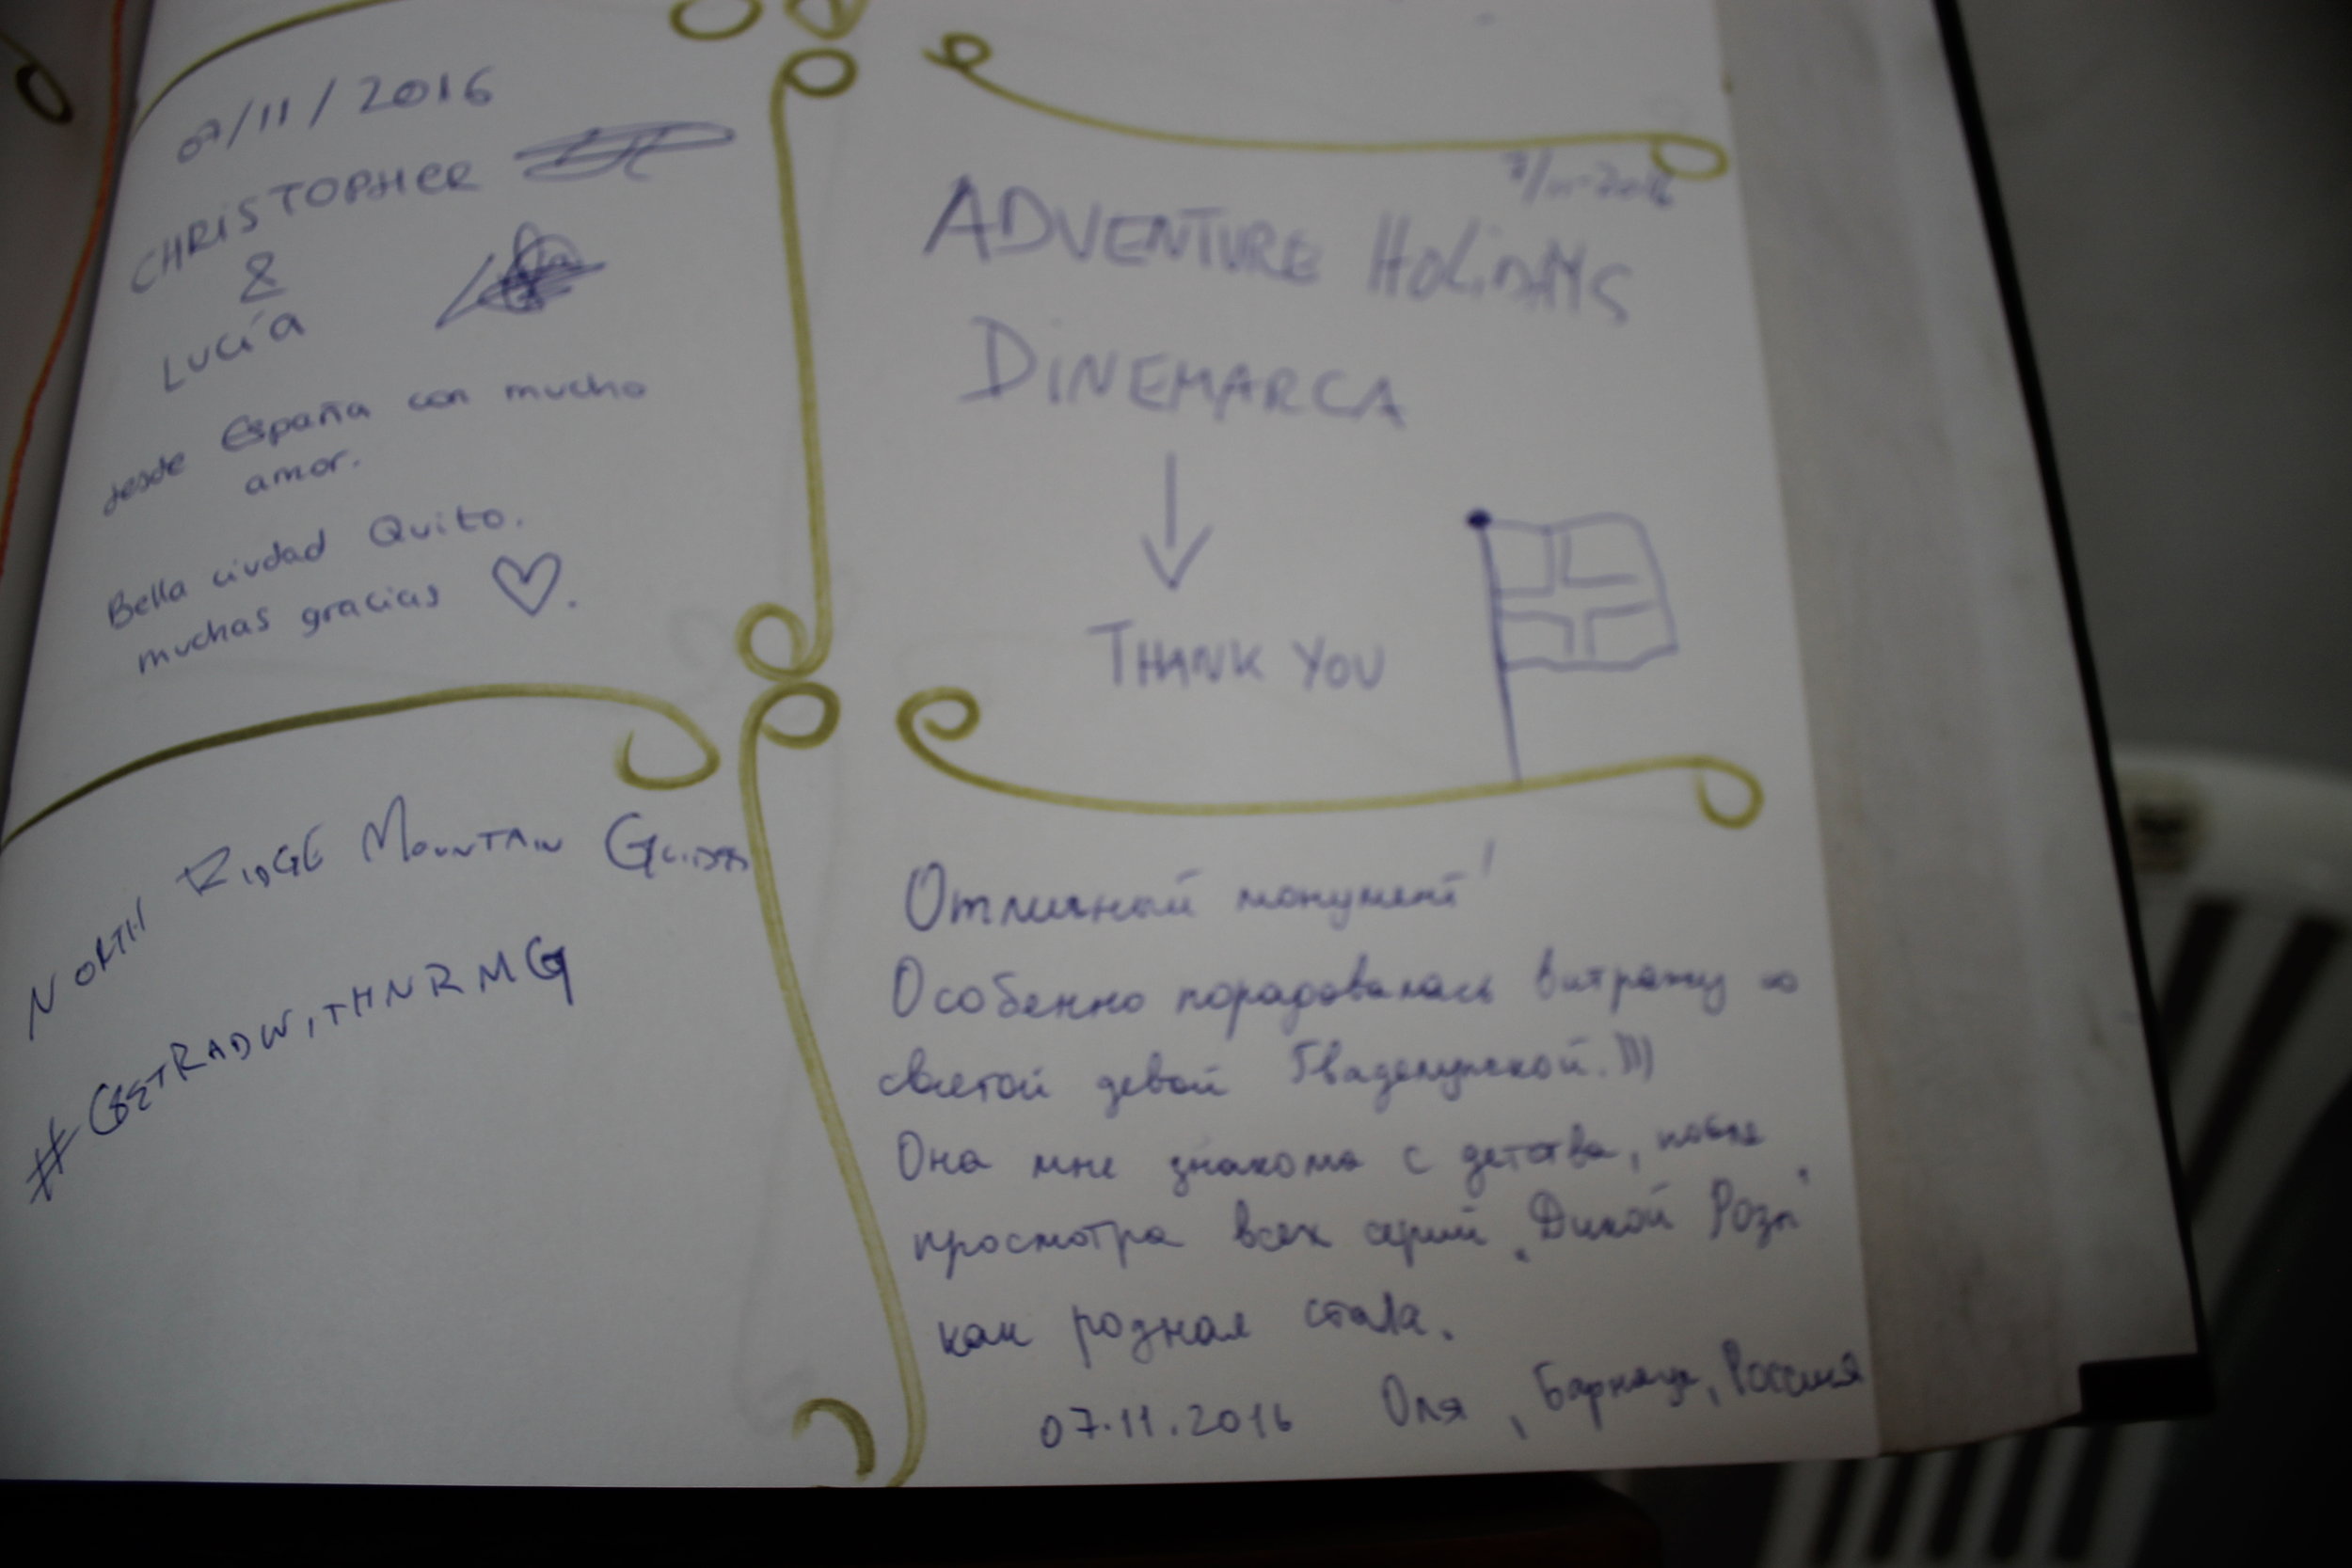 07/11/2016
CHRISTOPHER
&
LUCÍA
desde España con mucho
amor.
Bella ciudad Quito.
muchas gracias
NORTH RIDGE MOUNTAIN GUIDES
#GETRADWITHNRMG
7/11-2016
ADVENTURE HOLIDAYS
DINEMARCA
THANK YOU
Отличный монумент!
Особенно порадовалась витражу со
святой девой Гваделупской.)))
Она мне знакома с детства, после
просмотра всех серий "Дикой Розы"
как родная стала.
07.11.2016 Оля, Барнаул, Россия